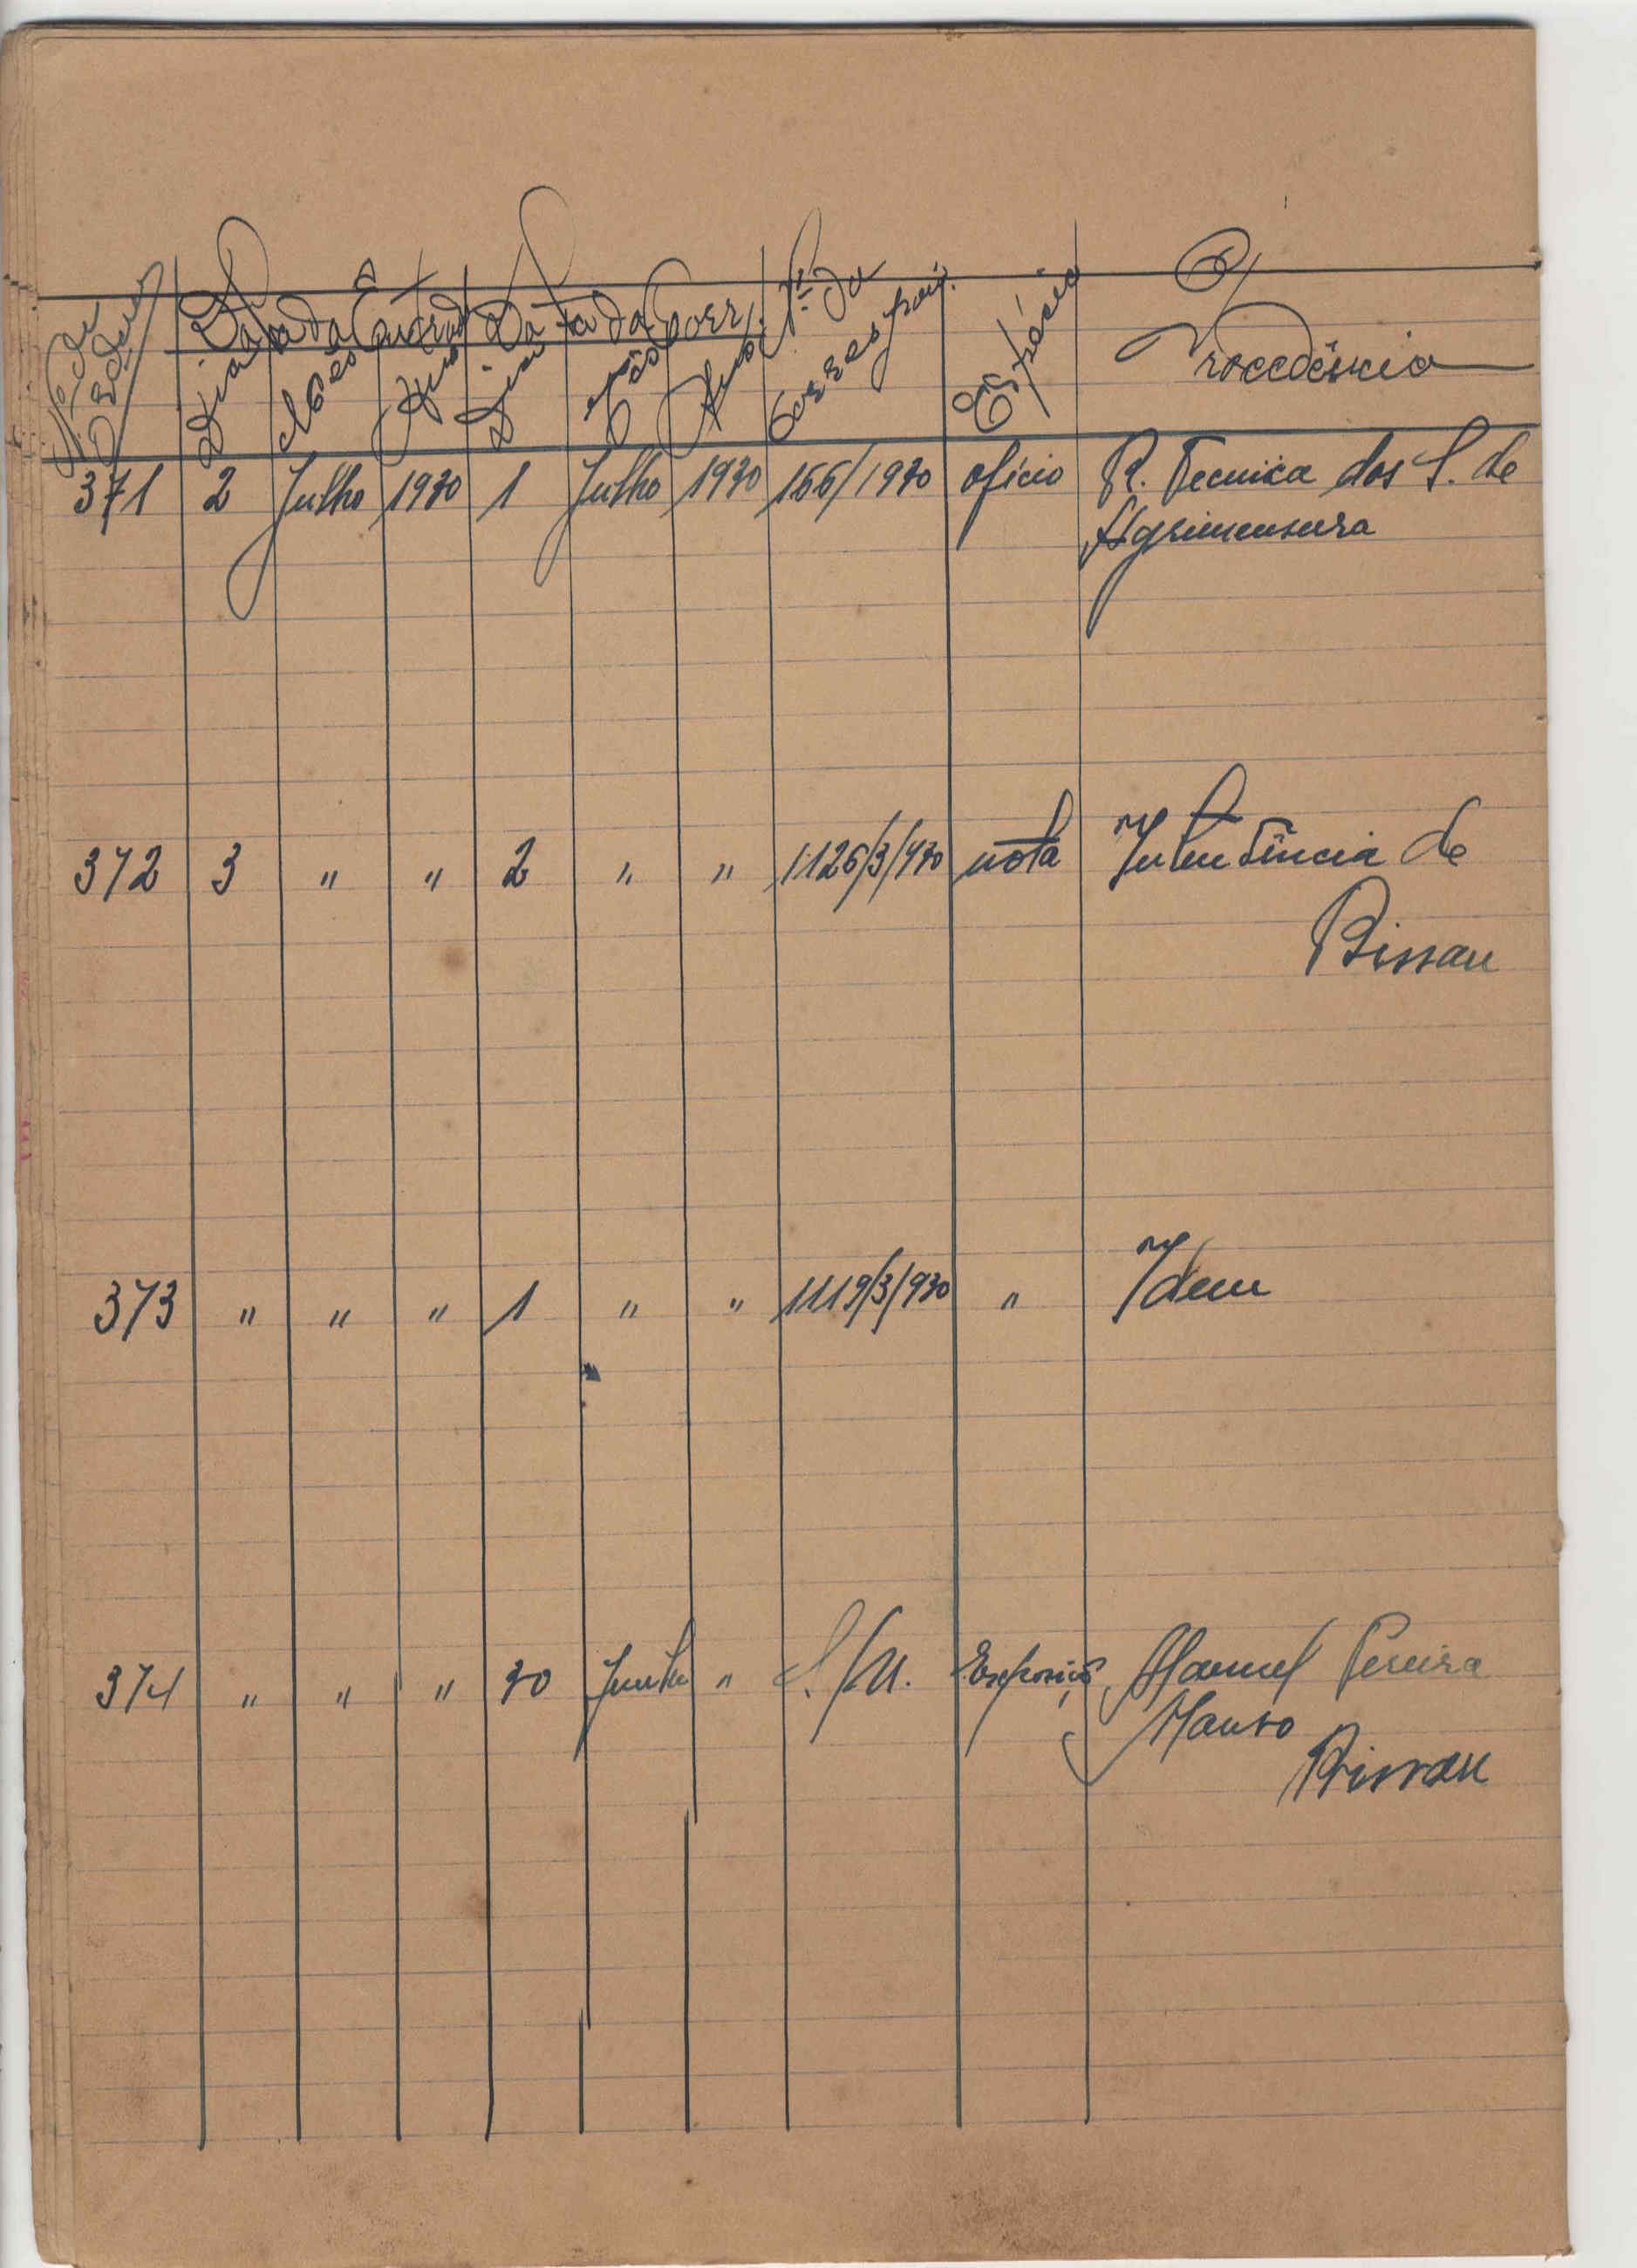 Nº de Ordem Data da Entrada Data da Corr. Nº da Correspond. Espécie Procedência
Dia Mês Ano Dia Mês Ano
371 2 Julho 1930 1 Julho 1930 166/1930 ofício R. Tecnica dos S. de
Agrimensura
372 3 " " 2 " " 1126/3/930 nota Intendência de
Bissau
373 " " " 1 " " 1119/3/930 " Idem
374 " " " 30 Junho " S/n. Exposição Manuel Pereira
Manso
Bissau